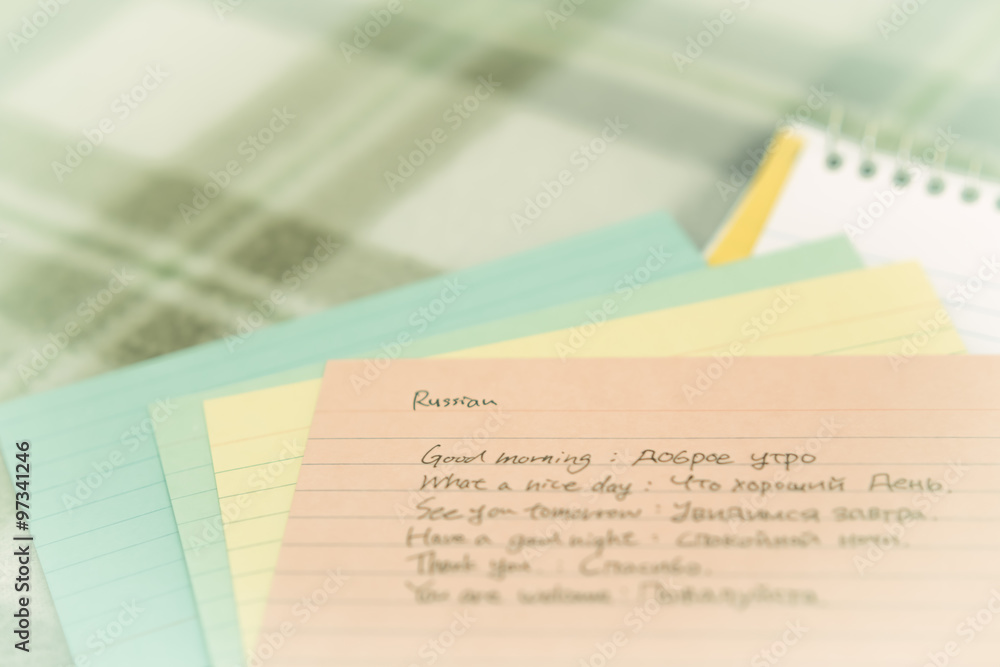 Russian
Good morning : Доброе утро
What a nice day : Что хороший День.
See you tomorrow : Увидимся завтра.
Have a good night : спокойной ночи.
Thank you : Спасибо.
You are welcome : Пожалуйста
Adobe Stock | #97341246